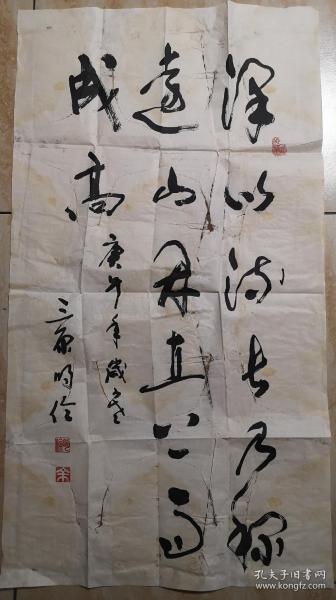 泽以流长乃称
遠山因直上而
成高
庚午年歲
三原
孔夫子旧书网
kongfz.com